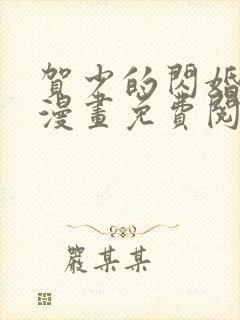 賀少的閃婚
漫畫免費閱
嚴某某